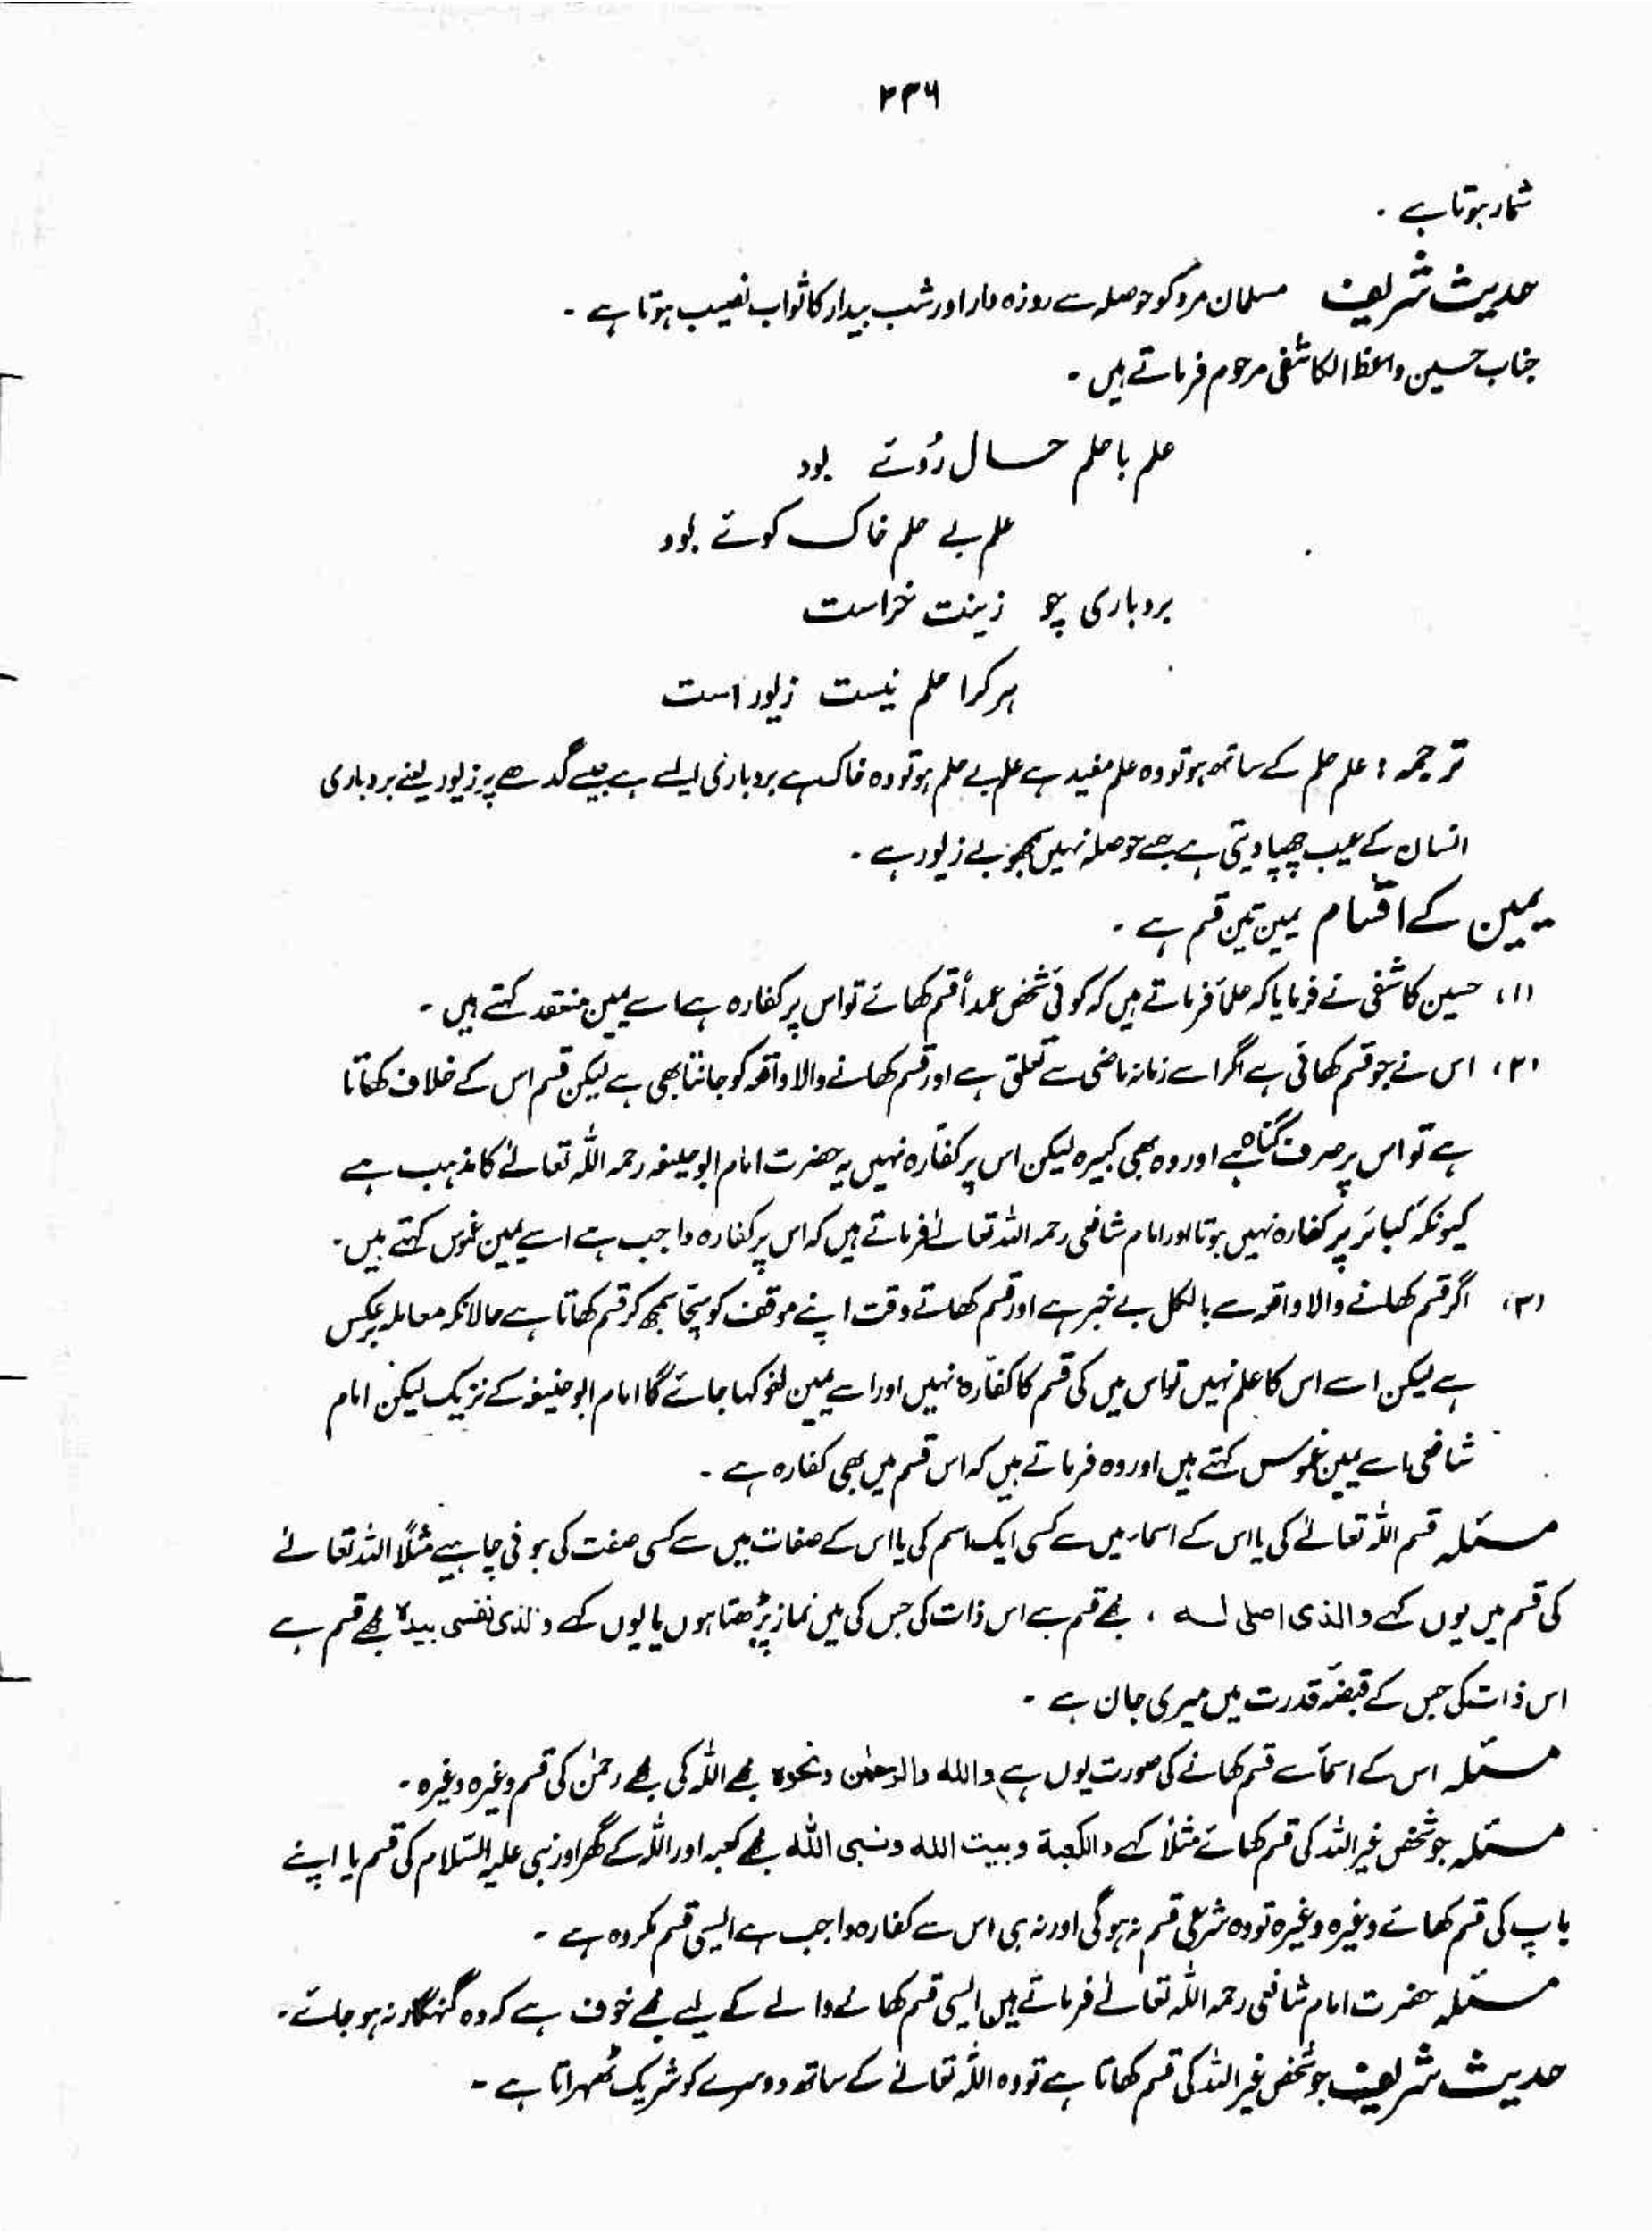 ۲۳۶
شمار ہوتا ہے ۔
حدیث شریف مسلمان مرد کو حوصلہ سے روزہ دار اور شب بیدار کا ثواب نصیب ہوتا ہے ۔
جناب حسین واعظ الکاشفی مرحوم فرماتے ہیں ۔
علم با حلم حسال رُوئے بود
علم بے حلم خاک کوئے بود
بردباری چو زینت خراست
ہر کرا حلم نیست زیور است
ترجمہ : علم حلم کے ساتھ ہو تو وہ علم مفید ہے علم بے حلم ہو تو وہ خاک ہے بردباری ایسے ہے جیسے گدھے پر زیور یعنے بردباری
انسان کے عیب چھپا دیتی ہے جسے حوصلہ نہیں سمجھو بے زیور ہے ۔
یمین کے اقسام یمین تین قسم ہے ۔
(۱) حسین کاشفی نے فرمایا کہ علمأ فرماتے ہیں کہ کوئی شخص عمداً قسم کھائے تو اس پر کفارہ ہے اسے یمین منعقد کہتے ہیں ۔
(۲) اس نے جو قسم کھائی ہے اگر اسے زمانہ ماضی سے تعلق ہے اور قسم کھانے والا واقعہ کو جانتا بھی ہے لیکن قسم اس کے خلاف کھاتا
ہے تو اس پر صرف گناہ ہے اور وہ بھی کبیرہ لیکن اس پر کفّارہ نہیں یہ حضرت امام ابوحنیفہ رحمہ اللہ تعالےٰ کا مذہب ہے
کیونکہ کبائر پر کفارہ نہیں ہوتا اور امام شافعی رحمہ اللہ تعالےٰ فرماتے ہیں کہ اس پر کفارہ واجب ہے اسے یمین غموس کہتے ہیں ۔
(۳) اگر قسم کھانے والا واقعہ سے بالکل بے خبر ہے اور قسم کھاتے وقت اپنے موقف کو سچّا سمجھ کر قسم کھاتا ہے حالانکہ معاملہ برعکس
ہے لیکن اسے اس کا علم نہیں تو اس میں کی قسم کا کفّارہ نہیں اور اسے یمین لغو کہا جائے گا امام ابوحنیفہ کے نزیک لیکن امام
شافعی اسے یمین غموس کہتے ہیں اور وہ فرماتے ہیں کہ اس قسم میں بھی کفارہ ہے ۔
مسئلہ قسم اللہ تعالےٰ کی یا اس کے اسماء میں سے کسی ایک اسم کی یا اس کے صفات میں سے کسی صفت کی ہونی چاہیے مثلاً اللہ تعالےٰ
کی قسم میں یوں کہے والذی اصلی لہ ، مجھے قسم ہے اس ذات کی جس کی میں نماز پڑھتا ہوں یا یوں کہے والذی نفسی بیدہ مجھے قسم ہے
اس ذات کی جس کے قبضۂ قدرت میں میری جان ہے ۔
مسئلہ اس کے اسمأ سے قسم کھانے کی صورت یوں ہے) واللہ والرحمٰن ونحوہ مجھے اللہ کی مجھے رحمٰن کی قسم وغیرہ وغیرہ ۔
مسئلہ جو شخص غیر اللہ کی قسم کھائے مثلاً کہے والکعبة وبیت اللہ ونبی اللہ مجھے کعبہ اور اللہ کے گھر اور نبی علیہ السّلام کی قسم یا اپنے
باپ کی قسم کھائے وغیرہ وغیرہ تو وہ شرعی قسم نہ ہوگی اور نہ ہی اس سے کفارہ واجب ہے ایسی قسم مکروہ ہے ۔
مسئلہ حضرت امام شافعی رحمہ اللہ تعالےٰ فرماتے ہیں ایسی قسم کھانے والے کے لیے مجھے خوف ہے کہ وہ گنہگار نہ ہو جائے ۔
حدیث شریف جو شخص غیر اللہ کی قسم کھاتا ہے تو وہ اللہ تعالےٰ کے ساتھ دوسرے کو شریک ٹھہراتا ہے ۔